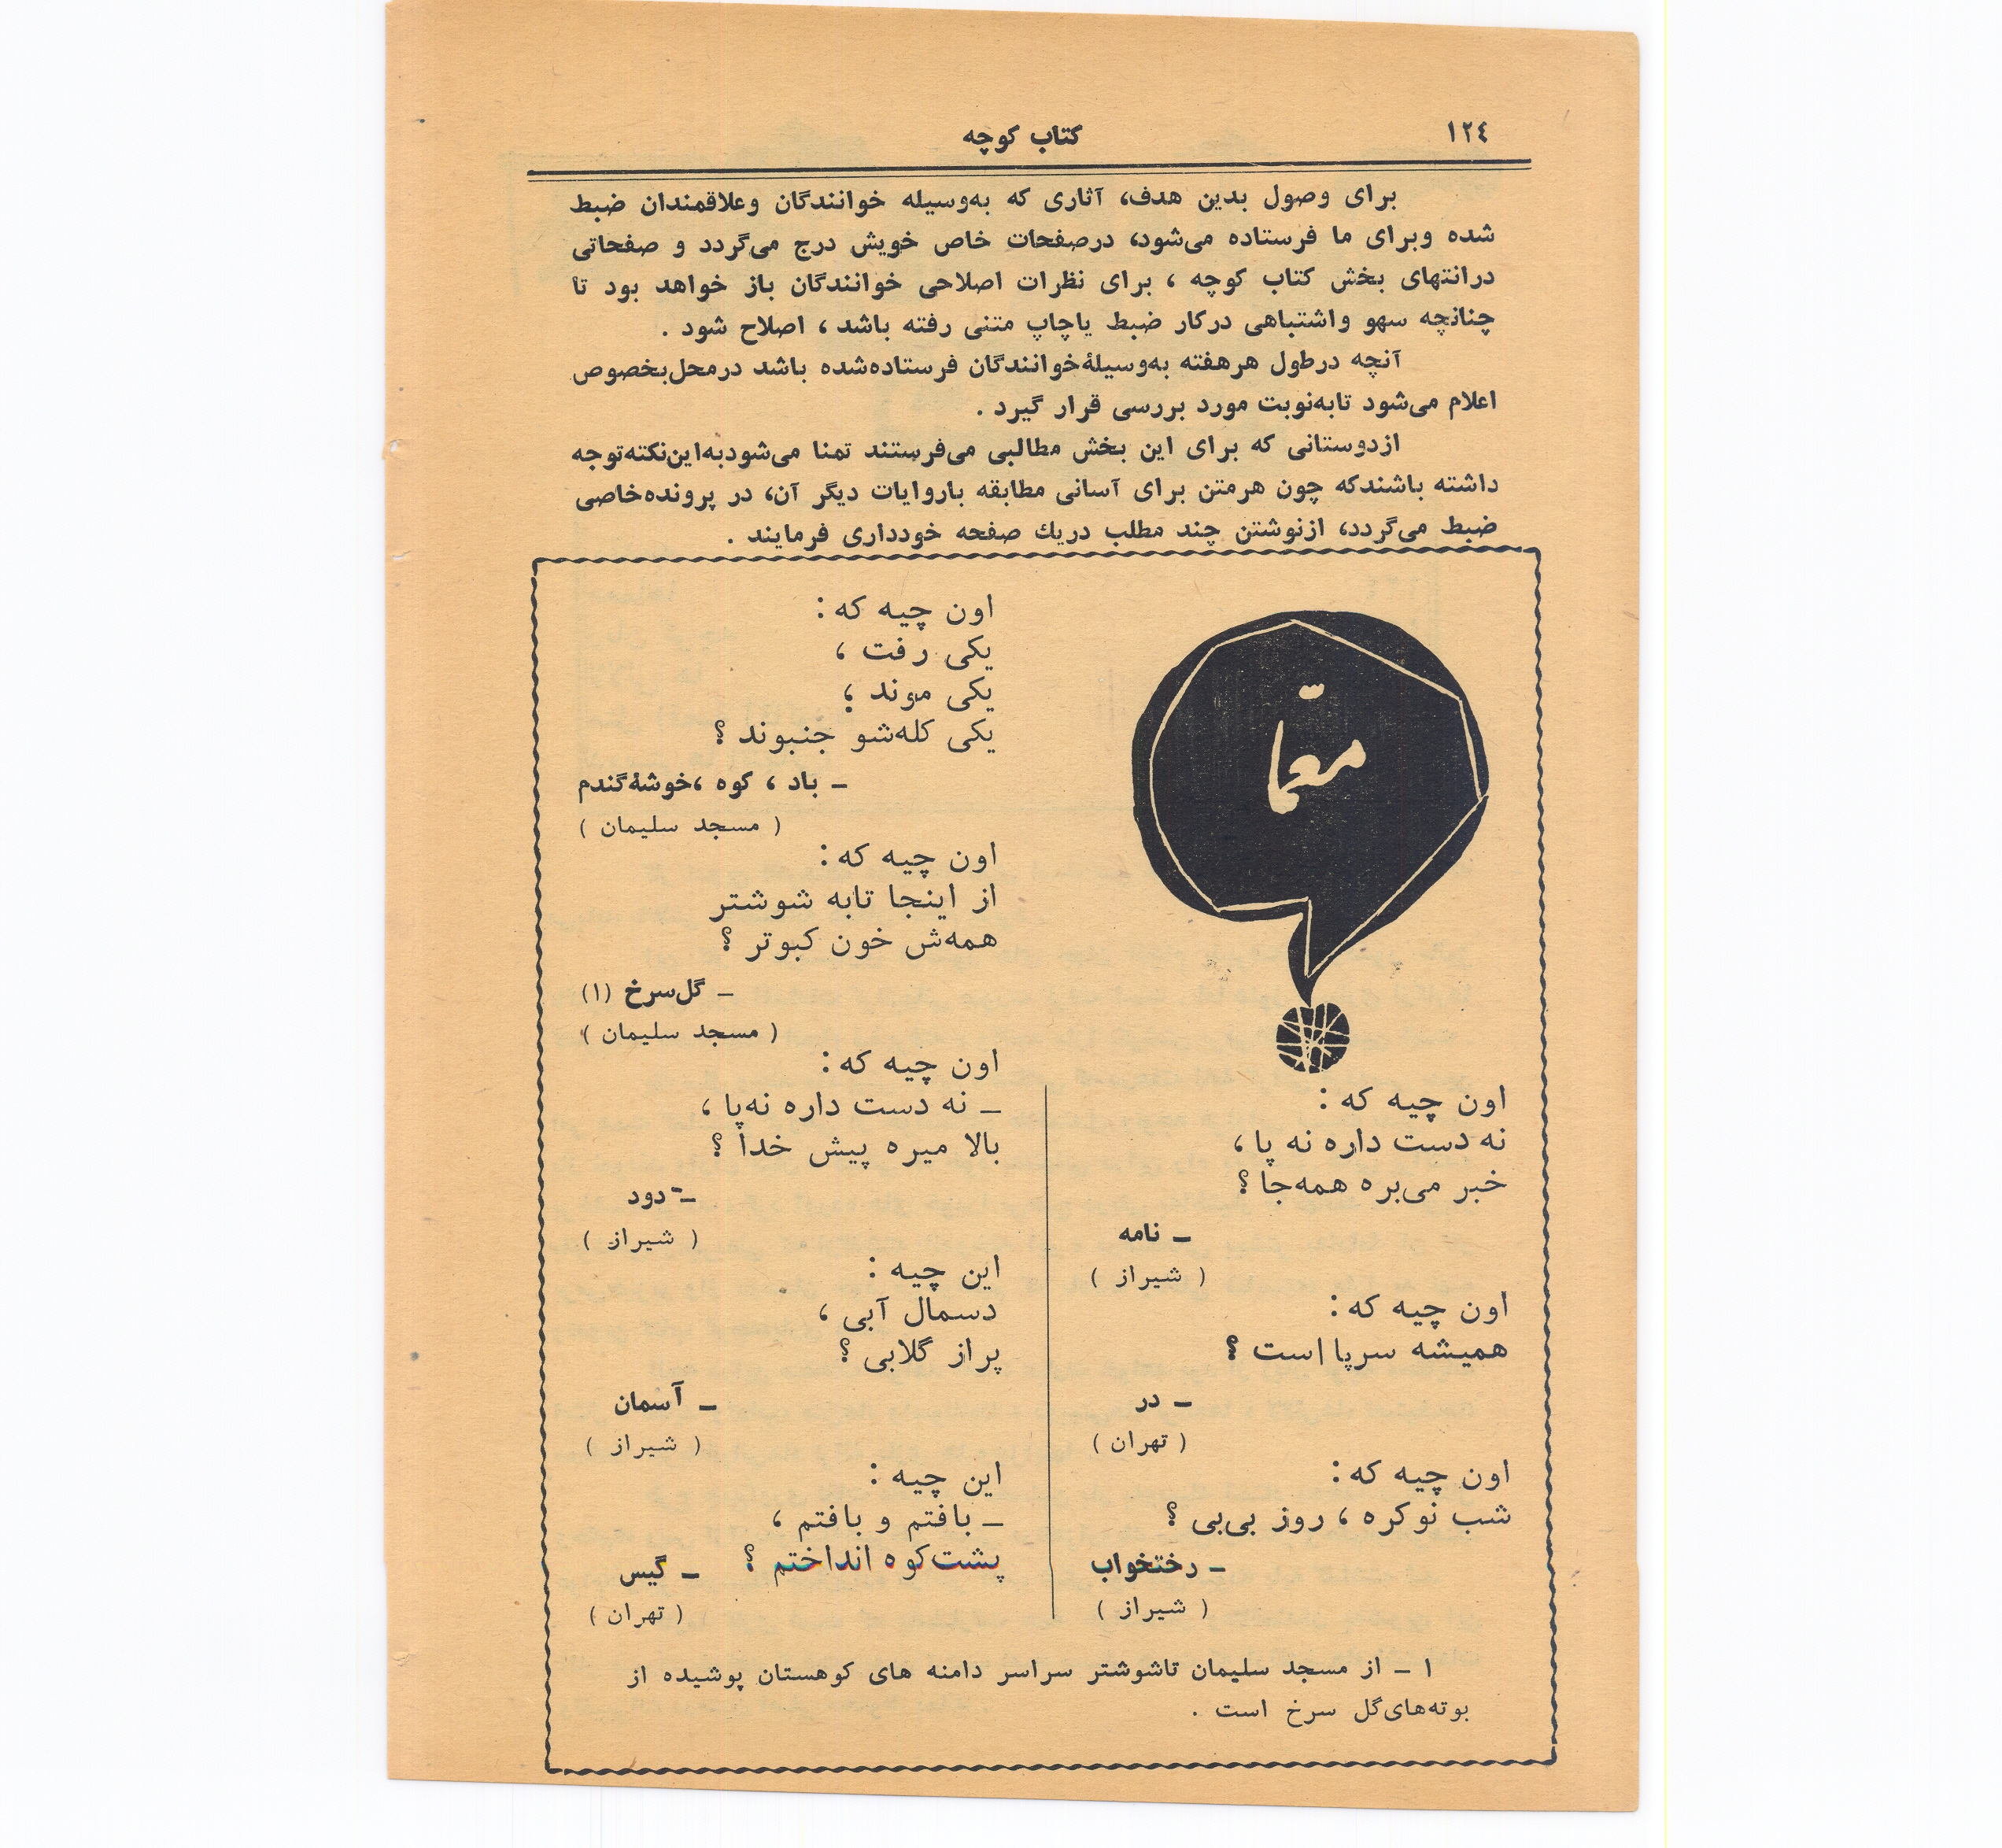 ۱۲۴
کتاب کوچه
برای وصول بدین هدف، آثاری که به‌وسیله خوانندگان وعلاقمندان ضبط
شده وبرای ما فرستاده می‌شود، درصفحات خاص خویش درج می‌گردد و صفحاتی
درانتهای بخش کتاب کوچه ، برای نظرات اصلاحی خوانندگان باز خواهد بود تا
چنانچه سهو واشتباهی درکار ضبط یاچاپ متنی رفته باشد ، اصلاح شود .
آنچه درطول هرهفته به‌وسیلهٔ‌خوانندگان فرستاده‌شده باشد درمحل‌بخصوص
اعلام می‌شود تابه‌نوبت مورد بررسی قرار گیرد .
ازدوستانی که برای این بخش مطالبی می‌فرستند تمنا می‌شودبه‌این‌نکته‌توجه
داشته باشندکه چون هرمتن برای آسانی مطابقه باروایات دیگر آن، در پرونده‌خاصی
ضبط می‌گردد، ازنوشتن چند مطلب دریك صفحه خودداری فرمایند .
معمّا
اون چیه که :
نه دست داره نه پا ،
خبر می‌بره همه‌جا ؟
ـ نامه
( شیراز )
اون چیه که :
همیشه سرپا است ؟
ـ در
( تهران )
اون چیه که :
شب نوکره ، روز بی‌بی ؟
ـ رختخواب
( شیراز )
اون چیه که :
یکی رفت ،
یکی موند ؛
یکی کله‌شو جنبوند ؟
ـ باد ، کوه ،خوشهٔ‌گندم
( مسجد سلیمان )
اون چیه که :
از اینجا تابه شوشتر
همه‌ش خون کبوتر ؟
ـ گل‌سرخ (۱)
( مسجد سلیمان )
اون چیه که :
ـ نه دست داره نه‌پا ،
بالا میره پیش خدا ؟
ـ دود
( شیراز )
این چیه :
دسمال آبی ،
پراز گلابی ؟
ـ آسمان
( شیراز )
این چیه :
ـ بافتم و بافتم ،
پشت‌کوه انداختم ؟
ـ گیس
( تهران )
۱ ـ از مسجد سلیمان تاشوشتر سراسر دامنه های کوهستان پوشیده از
بوته‌های‌گل سرخ است .